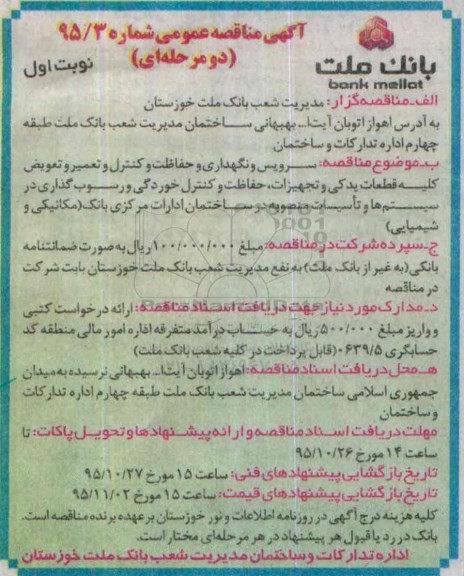 آگهی مناقصه عمومی شماره ۹۵/۳
(دو مرحله‌ای)
نوبت اول
بانک ملت
bank mellat
الف-مناقصه‌گزار: مدیریت شعب بانک ملت خوزستان
به آدرس اهواز اتوبان آیت‌ا... بهبهانی ساختمان مدیریت شعب بانک ملت طبقه
چهارم اداره تدارکات و ساختمان
ب-موضوع مناقصه: سرویس و نگهداری و حفاظت و کنترل و تعمیر و تعویض
کلیه قطعات یدکی و تجهیزات، حفاظت و کنترل خوردگی و رسوب گذاری در
سیستم‌ها و تأسیسات منصوبه در ساختمان ادارات مرکزی بانک (مکانیکی و
شیمیایی)
ج-سپرده شرکت در مناقصه: مبلغ ۱۰۰/۰۰۰/۰۰۰ ریال به صورت ضمانتنامه
بانکی (به غیر از بانک ملت) به نفع مدیریت شعب بانک ملت خوزستان بابت شرکت
در مناقصه
د-مدارک مورد نیاز جهت دریافت اسناد مناقصه: ارائه درخواست کتبی
و واریز مبلغ ۵۰۰/۰۰۰ ریال به حساب درآمد متفرقه اداره امور مالی منطقه کد
حسابگری ۰۶۳۹/۵ (قابل پرداخت در کلیه شعب بانک ملت)
هـ-محل دریافت اسناد مناقصه: اهواز اتوبان آیت‌ا... بهبهانی نرسیده به میدان
جمهوری اسلامی ساختمان مدیریت شعب بانک ملت طبقه چهارم اداره تدارکات
و ساختمان
مهلت دریافت اسناد مناقصه و ارائه پیشنهادها و تحویل پاکات: تا
ساعت ۱۴ مورخ ۹۵/۱۰/۲۶
تاریخ بازگشایی پیشنهادهای فنی: ساعت ۱۵ مورخ ۹۵/۱۰/۲۷
تاریخ بازگشایی پیشنهادهای قیمت: ساعت ۱۵ مورخ ۹۵/۱۱/۰۲
کلیه هزینه درج آگهی در روزنامه اطلاعات و نور خوزستان بر عهده برنده مناقصه است.
بانک در رد یا قبول هر پیشنهاد در هر مرحله‌ای مختار است.
اداره تدارکات و ساختمان مدیریت شعب بانک ملت خوزستان